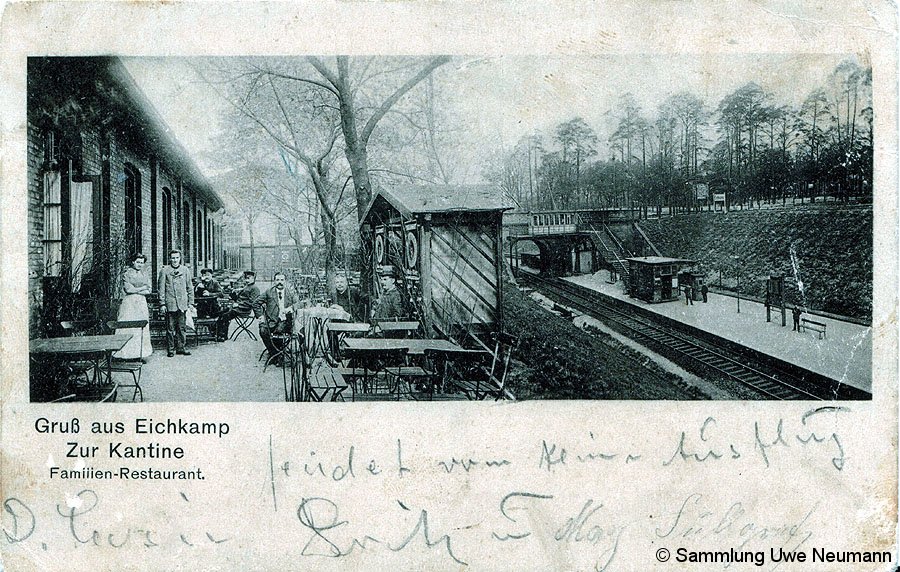 Gruß aus Eichkamp
Zur Kantine
Familien-Restaurant.
sendet vom kleinen Ausflug
Fritz u May
© Sammlung Uwe Neumann